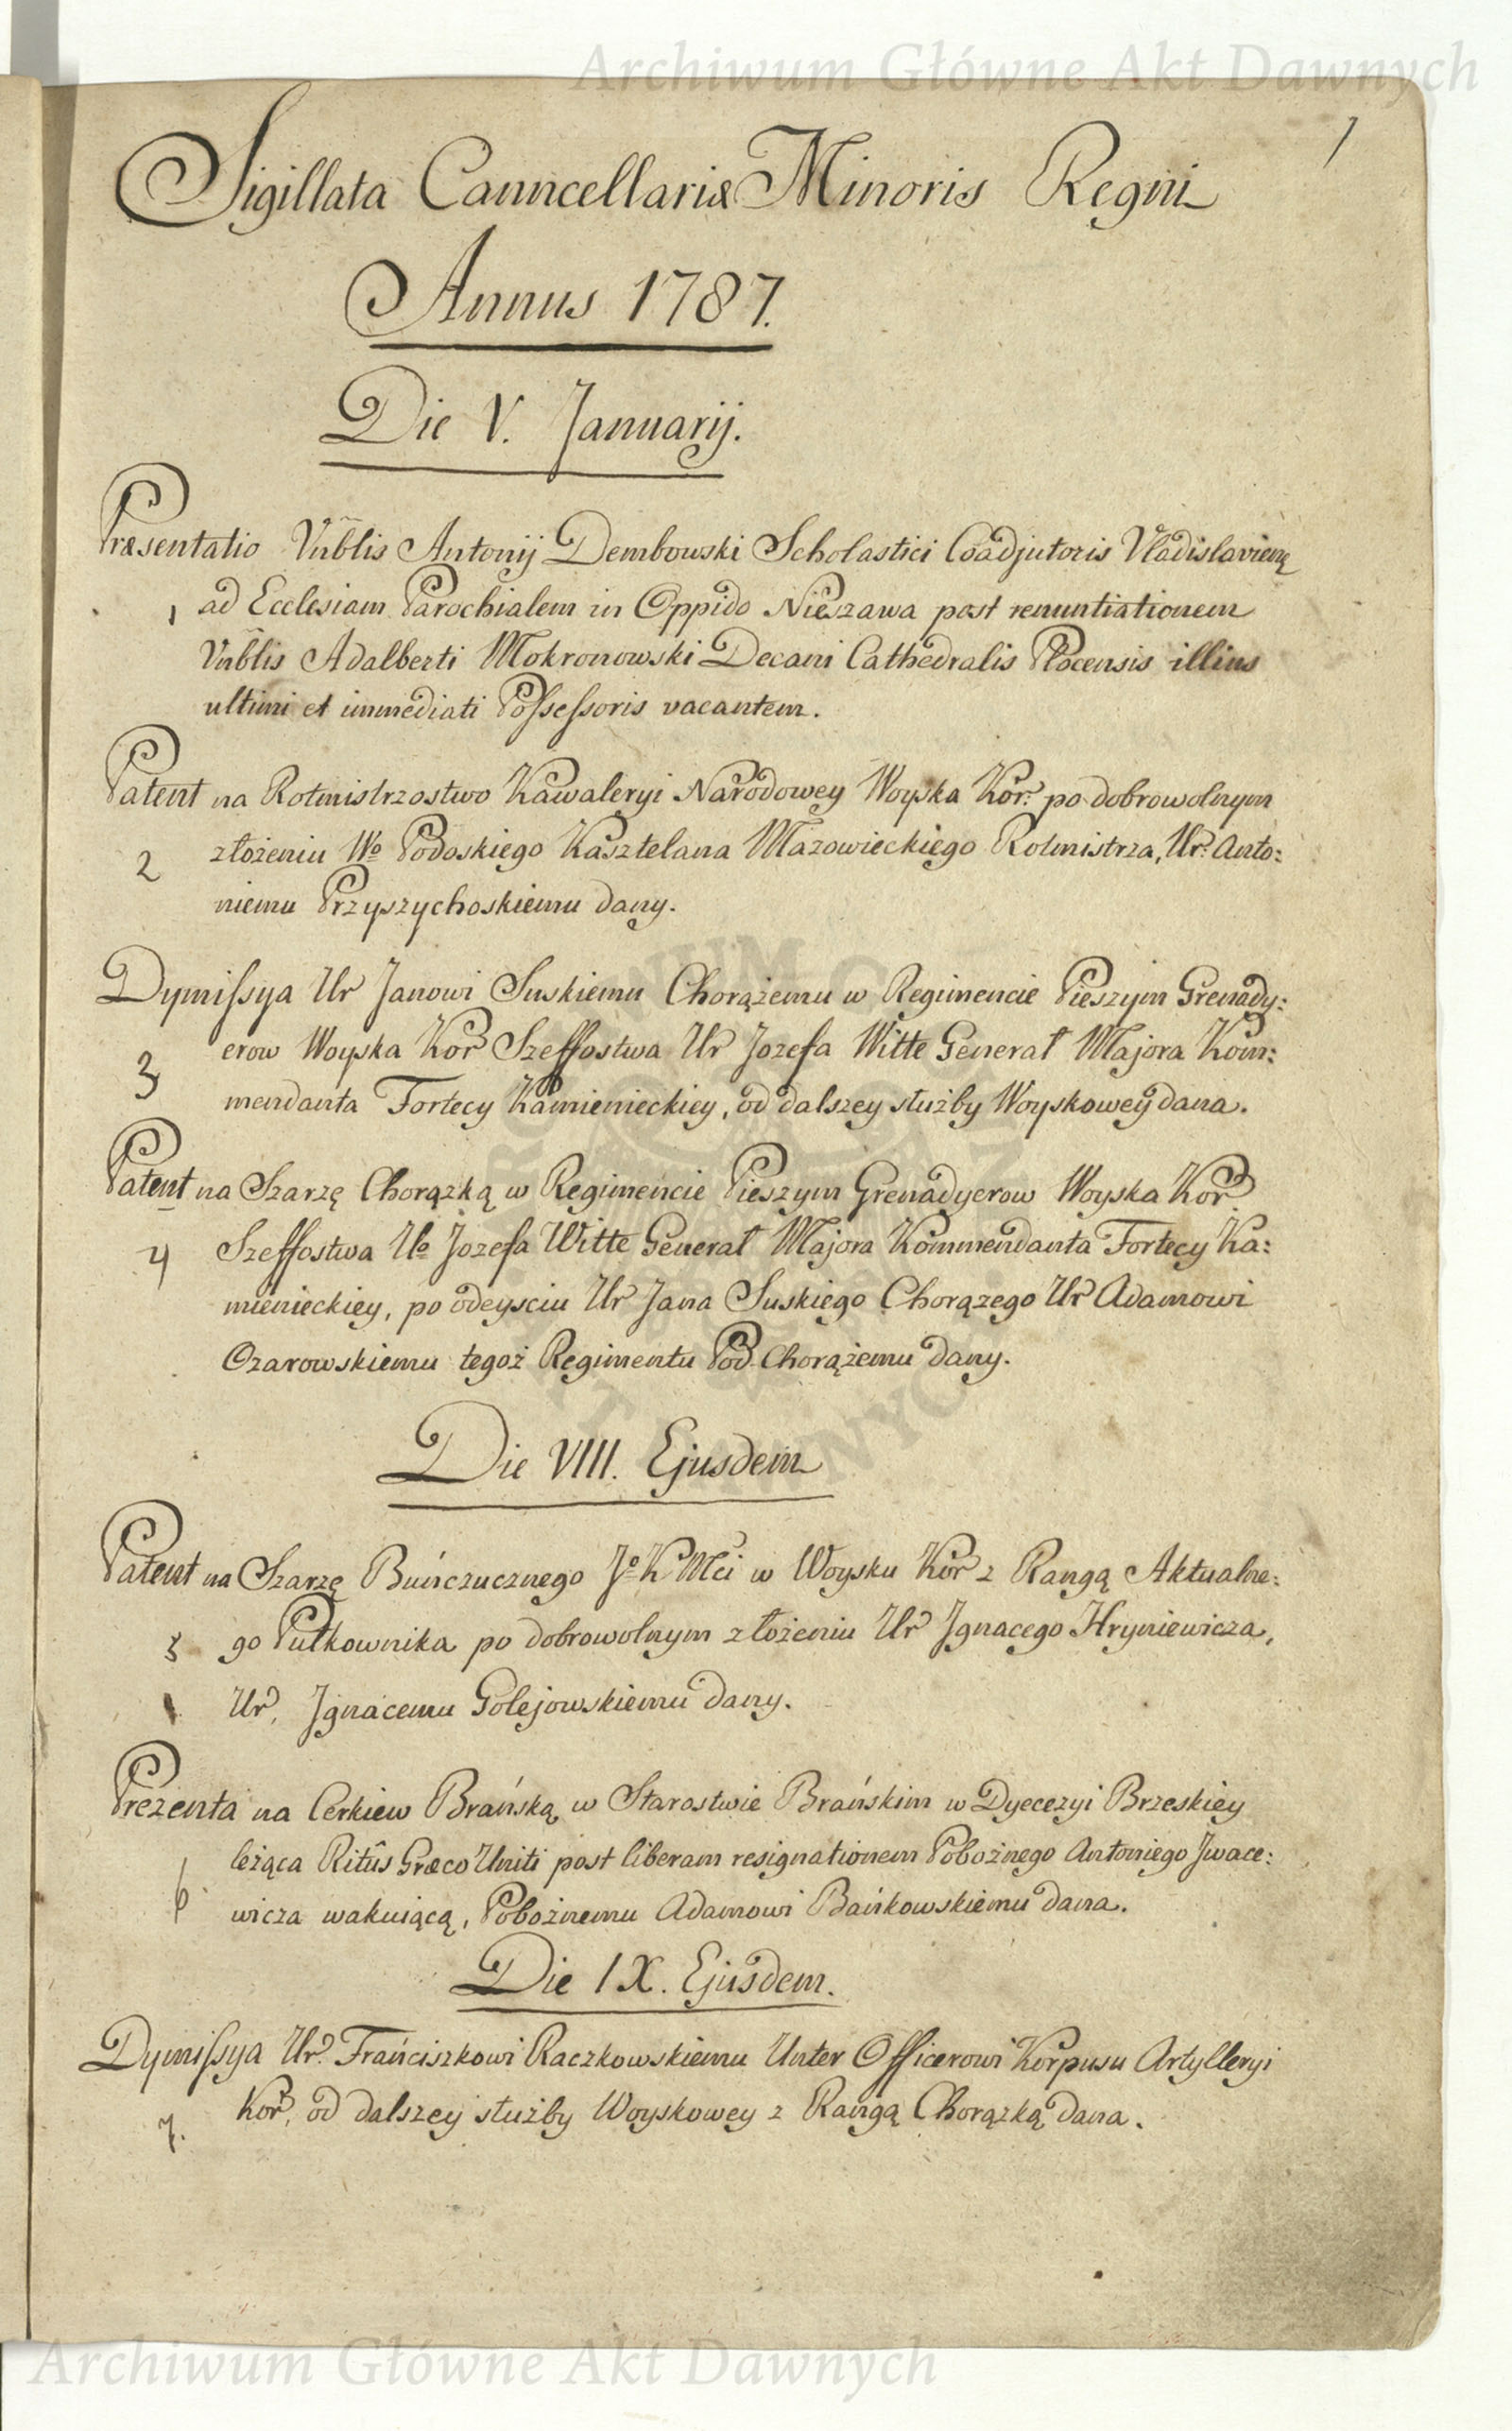 Archiwum Główne Akt Dawnych
1
Sigillata Canncellariæ Minoris Regni
Annus 1787.
Die V. Januarij.
Præsentatio Vnblis Antonij Dembowski Scholastici Coadjutoris Vladislavien
1 ad Ecclesiam Parochialem in Oppido Nieszawa post renuntiationem
Vnblis Adalberti Mokronowski Decani Cathedralis Plocensis illius
ultimi et immediati Possessoris vacantem.
Patent na Rotmistrzostwo Kawaleryi Narodowey Woyska Kor. po dobrowolnym
2 złożeniu Wo Podoskiego Kasztelana Mazowieckiego Rotmistrza, Ur. Anto:
niemu Przyszychoskiemu dany.
Dymissya Ur Janowi Suskiemu Chorążemu w Regimencie Pieszym Grenady:
3 erow Woyska Kor Szeffostwa Ur Jozefa Witte Generał Majora Kom:
mendanta Fortecy Kamienieckiey, od dalszey służby Woyskowey dana.
Patent na Szarzę Chorązką w Regimencie Pieszym Grenadyerow Woyska Kor
4 Szeffostwa Uo Jozefa Witte Generał Majora Kommendanta Fortecy Ka:
mienieckiey, po odeysciu Ur Jana Suskiego Chorązego Ur Adamowi
Ozarowskiemu tegoż Regimentu Pod Chorążemu dany.
Die VIII. Ejusdem
Patent na Szarzę Buńczucznego Jo K Mci w Woysku Kor z Rangą Aktualne:
5 go Pułkownika po dobrowolnym złożeniu Ur Jgnacego Hryniewicza,
Ur. Jgnacemu Golejowskiemu dany.
Prezenta na Cerkiew Brańską w Starostwie Brańskim w Dyecezyi Brzeskiey
leżąca Ritûs Græco Uniti post liberam resignationem Pobożnego Antoniego Jwace:
6 wicza wakuiącą, Pobożnemu Adamowi Bańkowskiemu dana.
Die IX. Ejusdem.
Dymissya Ur. Franciszkowi Raczkowskiemu Unter Officerowi Korpusu Artylleryi
7. Kor, od dalszey służby Woyskowey z Rangą Chorązką dana.
Archiwum Główne Akt Dawnych